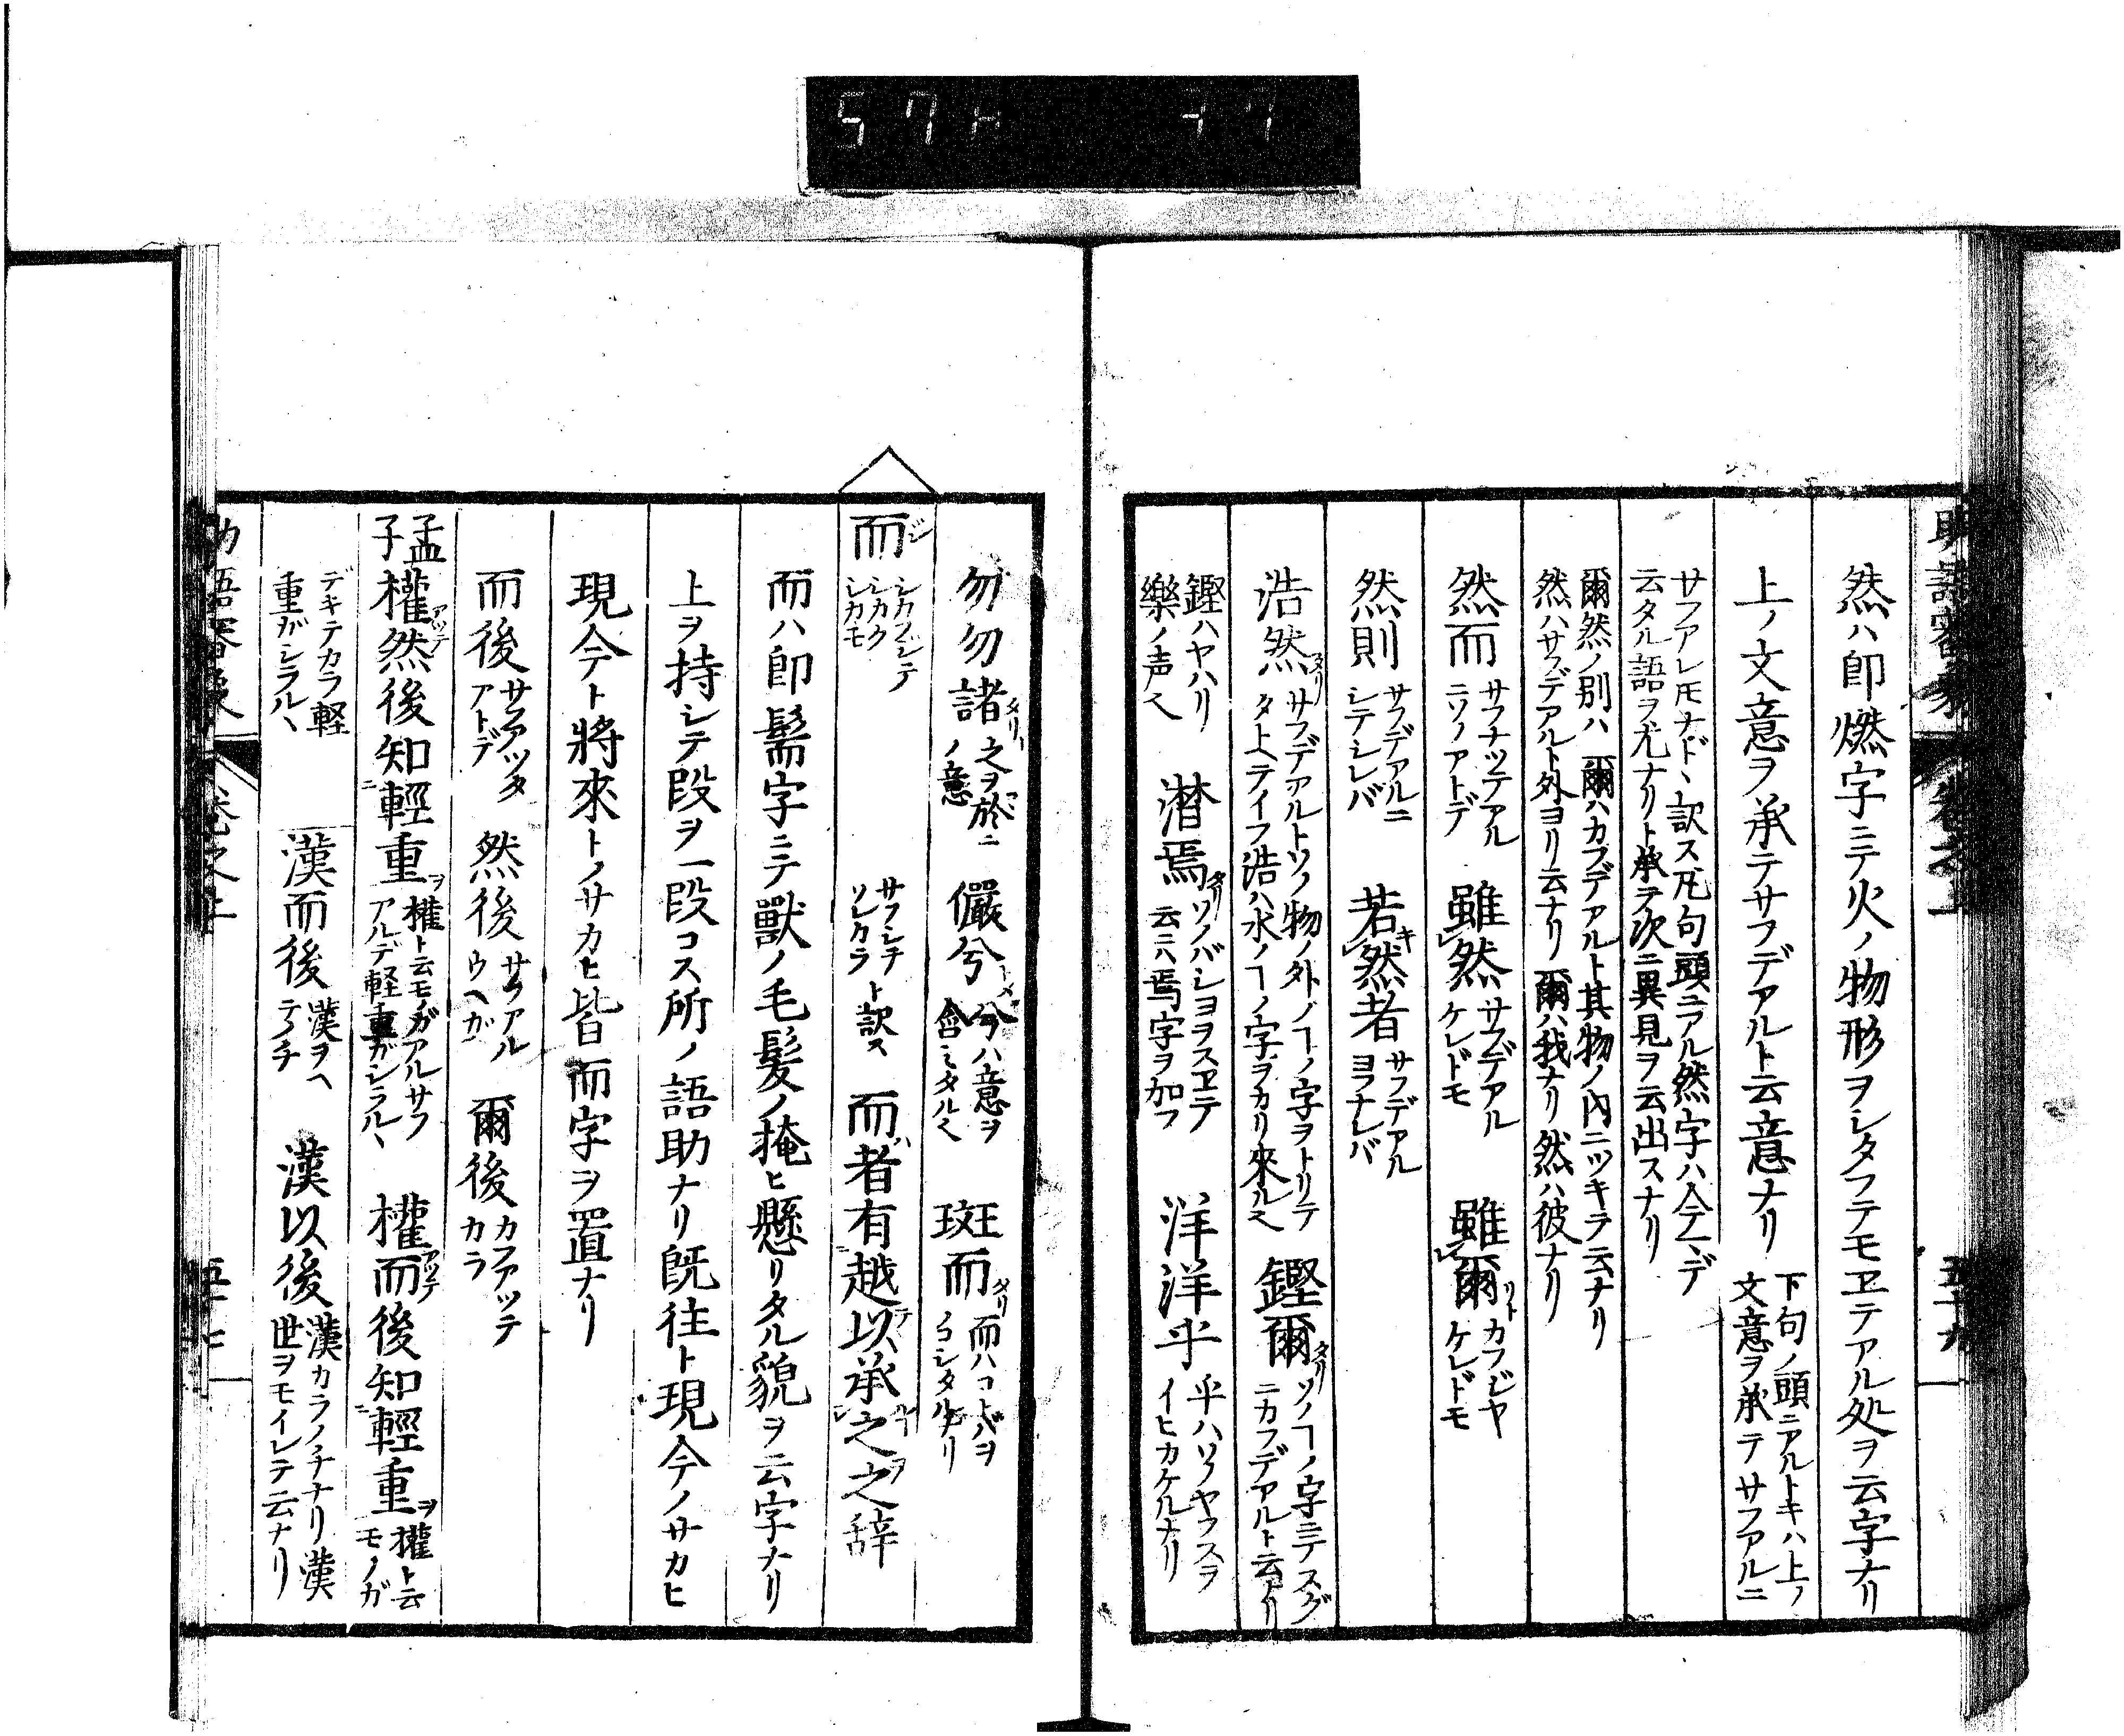 然ハ即燃字ニテ火ノ物形ヲシタフテモヱテアル処ヲ云字ナリ
上ノ文意ヲ承テサフデアルト云意ナリ
下句ノ頭ニアルトキハ上ノ
文意ヲ承テサフアルニ
サフアレ𪜈ナド丶訳ス凡句頭ニアル然字ハ人ノデ
云タル語ヲ尤ナリト承テ次ニ異見ヲ云出スナリ
爾然ノ別ハ 爾ハカフデアルト其物ノ内ニツキテ云ナリ
然ハサフデアルト外ヨリ云ナリ 爾ハ我ナリ然ハ彼ナリ
然而 サフナツテアル
ニソノアトデ
雖然 サフデアル
ケレドモ
雖爾 カフジヤ
ケレドモ
然則 サフデアルニ
シテシレバ
若然者 サフデアル
ヨフナレバ
浩然 サフデアルトソノ物ノ外ノヿノ字ヲトリテ
タトヘテイフ浩ハ水ノヿノ字ヲカリ來ル也
鏗爾 ソノヿノ字ニテスグ
ニカフデアルト云ナリ
鏗ハヤハリ
樂ノ声也
潜焉 ソノバシヨヲスヱテ
云ニハ焉字ヲ加フ
洋洋乎 乎ハソノヤフスヲ
イヒカケルナリ
勿勿諸 之ヲ於ニ
ノ意
儼兮 兮ハ意ヲ
含ミタル也
斑而 而ハコトバヲ
ノコシタルナリ
而 シカフシテ
シカク
シカモ
サフシテ
ソレカラ
ト訳ス
而者有越以承之之辞
而ハ即髵字ニテ獸ノ毛髪ノ掩ヒ懸リタル貌ヲ云字ナリ
上ヲ持シテ段ヲ一段コス所ノ語助ナリ既往ト現今ノサカヒ
現今ト將來トノサカヒ皆而字ヲ置ナリ
而後 サフアツタ
アトデ
然後 サフアル
ウヘガ
爾後 カフアツテ
カラ
孟子 權然後知輕重 權ト云モノガアルサフ
アルデ軽重ガシラル丶
權而後知輕重 權ト云
モノガ
デキテカラ軽
重ガシラル丶
漢而後 漢ヲヘ
テノチ
漢以後 漢カラノチナリ漢
世ヲモイレテ云ナリ